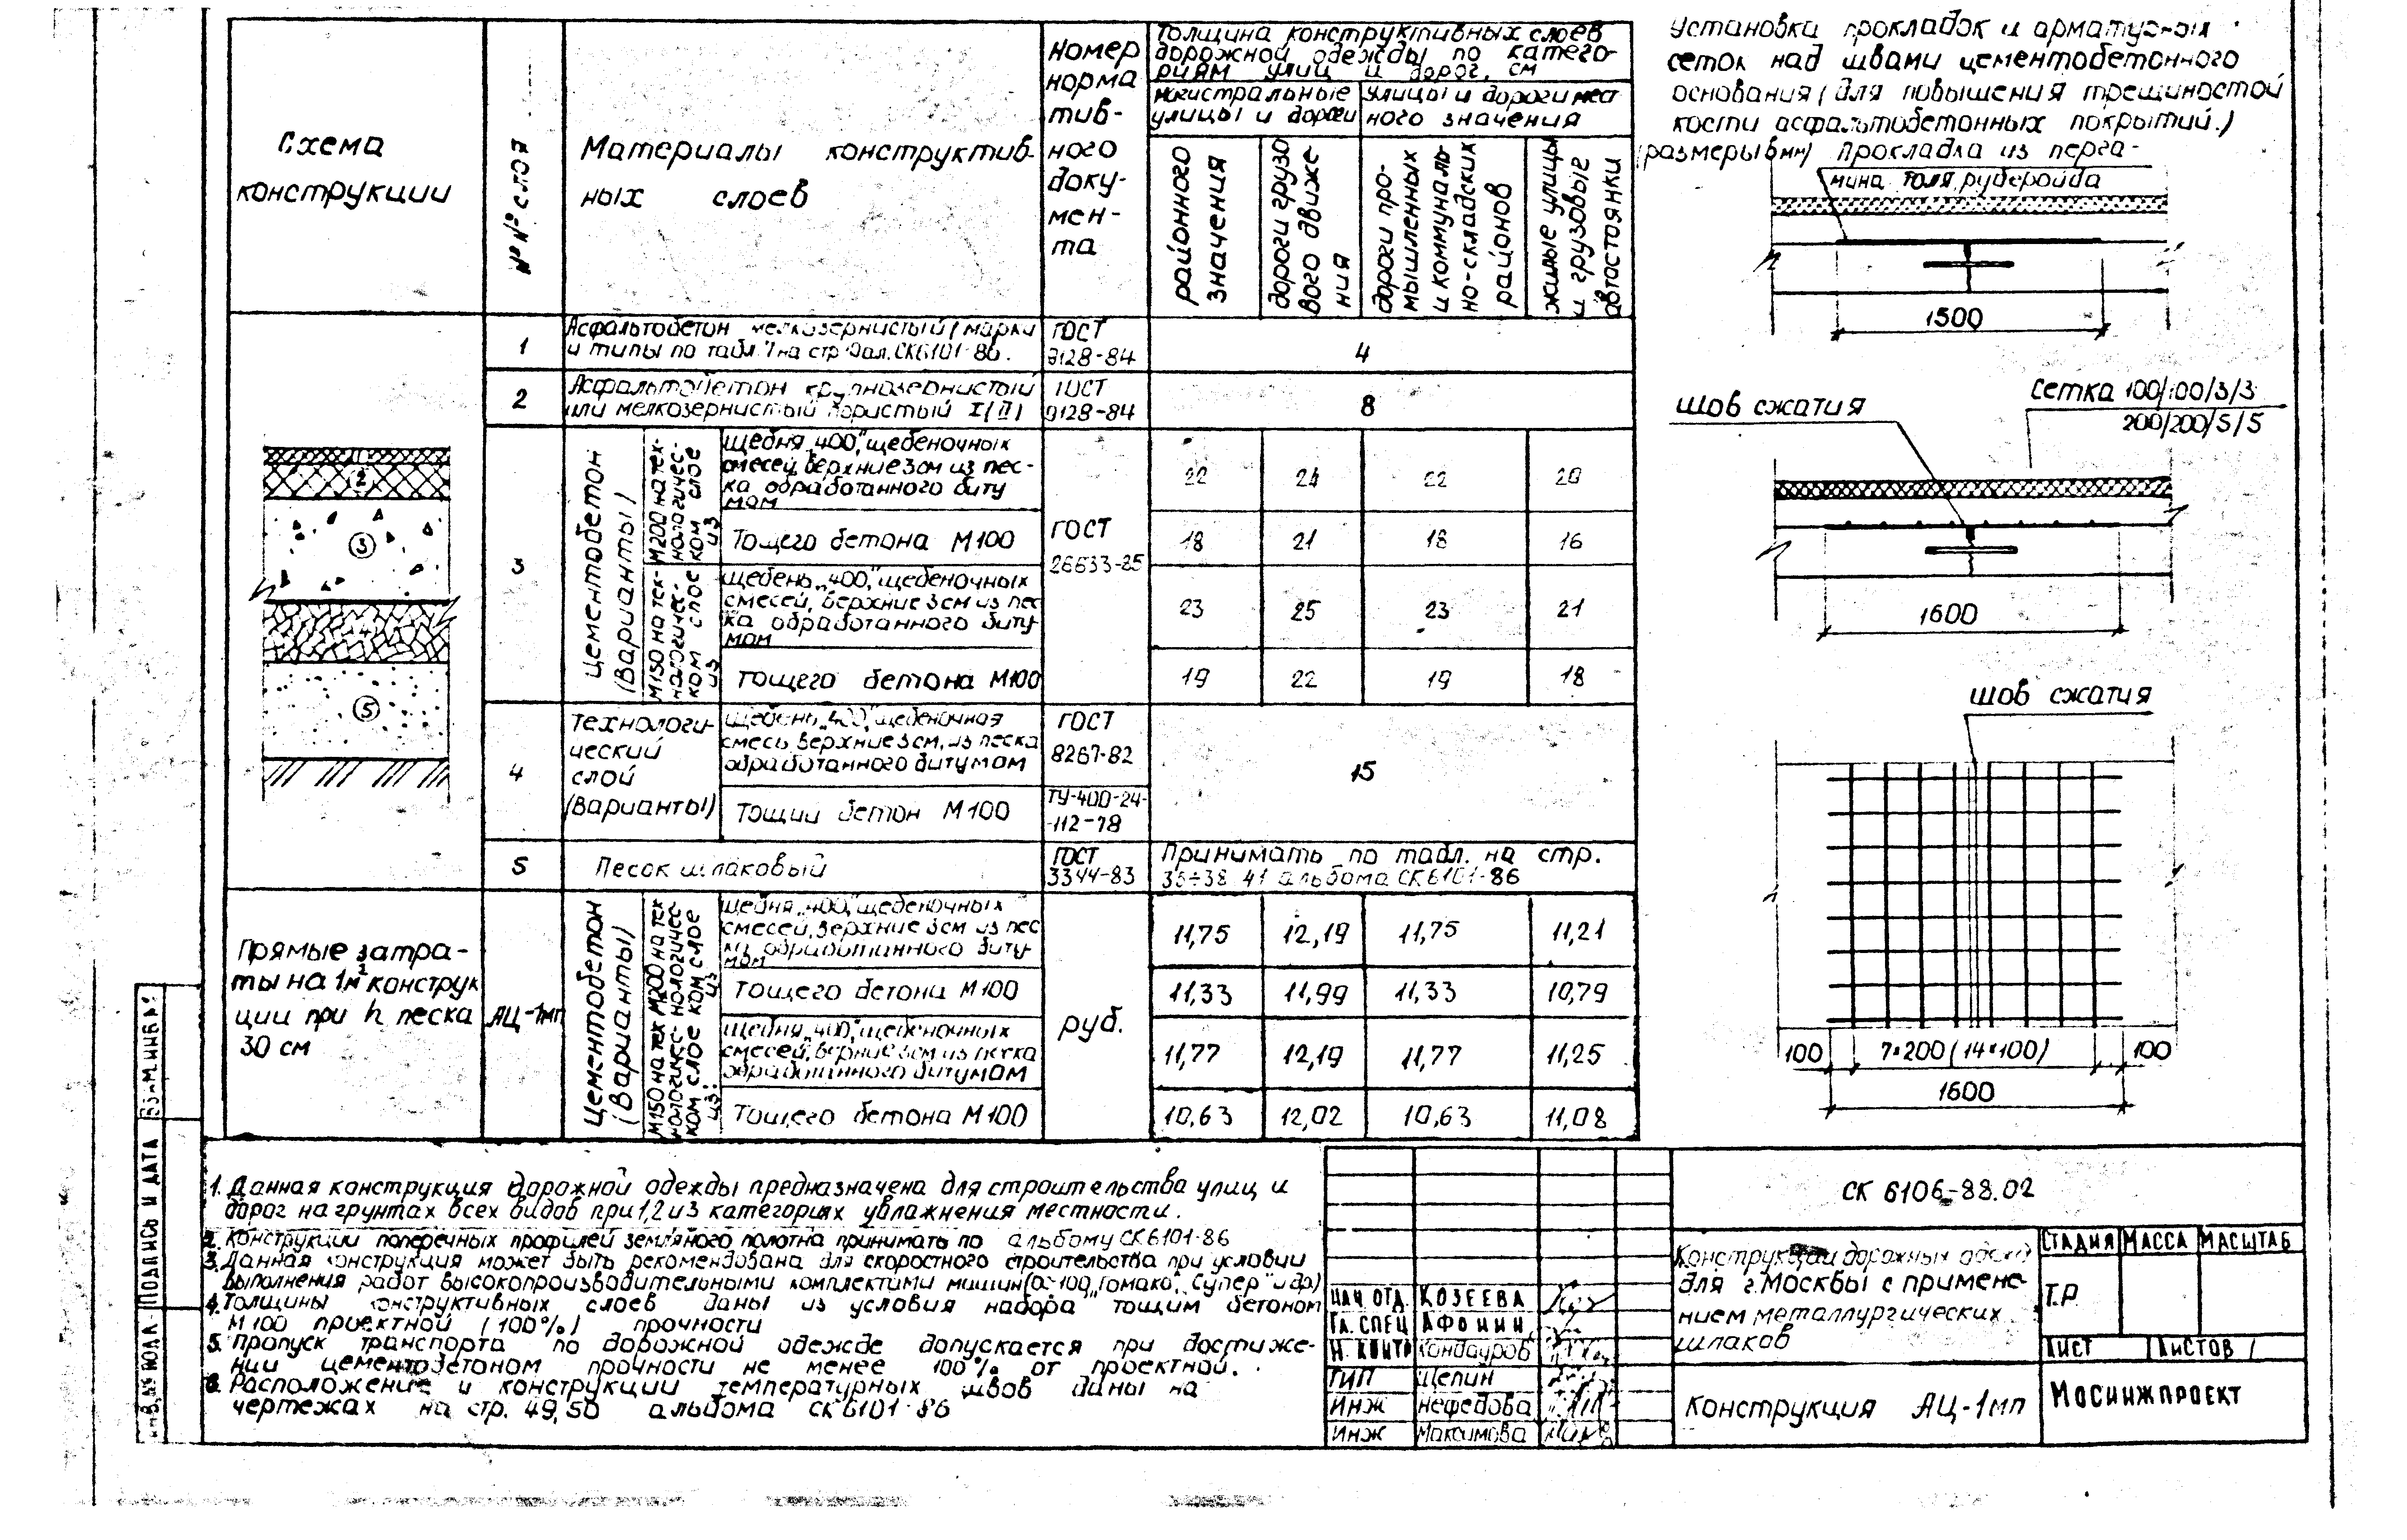 Схема
конструкции
№№ слоя
Материалы конструктив-
ных слоев
номер
норма
тив-
ного
доку-
мен-
та
Толщина конструктивных слоев
дорожной одежды по катего-
риям улиц и дорог, см
магистральные
улицы и дороги
улицы и дороги мест
ного значения
районного
значения
дороги грузо
вого движе-
ния
дороги про-
мышленных
и коммуналь-
но-складских
районов
жилые улицы
и грузовые
автостоянки
1
Асфальтобетон мелкозернистый (марки
и типы по табл. 7 на стр. ал. СК6101-86.
ГОСТ
9128-84
4
2
Асфальтобетон крупнозернистый
или мелкозернистый пористый I(II)
ГОСТ
9128-84
8
3
Цементобетон
(Варианты)
М200 на тех-
нологичес-
ком слое
из
щебня „400", щебеночных
смесей, верхние 3см из пес-
ка обработанного биту
мом
22 24 22 20
Тощего бетона М100
18 21 18 16
ГОСТ
26633-85
М150 на тех-
нологичес-
ком слое
из
щебень „400", щебеночных
смесей, верхние 3см из пес
ка обработанного биту-
мом
23 25 23 21
тощего бетона М100
19 22 19 18
4
технологи-
ческий
слой
(Варианты)
щебень „400", щебеночная
смесь верхние 3см, из песка
обработанного битумом
ГОСТ
8267-82
Тощий бетон М100
ТУ-400-24-
-112-78
15
5
Песок шлаковый
ГОСТ
3344-83
Принимать по табл. на стр.
35÷38 41 альбома СК6101-86
1
2
3
4
5
Прямые затра-
ты на 1м² конструк
ции при h песка
30 см
АЦ-1мп
Цементобетон
(Варианты)
М200 на тех
нологичес-
ком слое
из
щебня „400", щебеночных
смесей, верхние 3см из пес
ка обработанного биту-
мом
11,75 12,19 11,75 11,21
Тощего бетона М100
11,33 11,99 11,33 10,79
руб.
М150 на тех
нологичес-
ком слое
из:
щебня „400", щебеночных
смесей, верние 3см из песка
обработанного битумом
11,77 12,19 11,77 11,25
Тощего бетона М100
10,63 12,02 10,63 11,08
Установка прокладок и арматурных
сеток над швами цементобетонного
основания (для повышения трещиностой
кости асфальтобетонных покрытий.)
(размеры в мм) Прокладка из перга-
мина толя, рубероида
1500
шов сжатия
Сетка 100/100/3/3
200/200/5/5
1600
шов сжатия
100
7×200 (14×100)
100
1600
1. Данная конструкция дорожной одежды предназначена для строительства улиц и
дорог на грунтах всех видов при 1,2 и 3 категориях увлажнения местности.
2. Конструкции поперечных профилей земляного полотна принимать по альбому СК6101-86
3. Данная конструкция может быть рекомендована для скоростного строительства при условии
выполнения работ высокопроизводительными комплектами машин ( -100, „Гомако", „Супер" и др)
4. Толщины конструктивных слоев даны из условия набора тощим бетоном
М100 проектной (100%) прочности
5. Пропуск транспорта по дорожной одежде допускается при достиже-
нии цементобетоном прочности не менее 100% от проектной.
6. Расположение и конструкции температурных швов даны на
чертежах на стр. 49,50 альбома СК6101-86
Взам.инв.№
Подпись и дата
Инв.№ подл.
Нач. отд. Козеева
Гл. спец Афонин
Н. контр Кондауров
ГИП Щепин
Инж Нефедова
Инж Максимова
СК 6106-88.02
Конструкции дорожных одежд
для г. Москвы с примене-
нием металлургических
шлаков
Стадия Масса Масштаб
Т.Р.
Лист Листов 1
Конструкция АЦ-1мп
Мосинжпроект